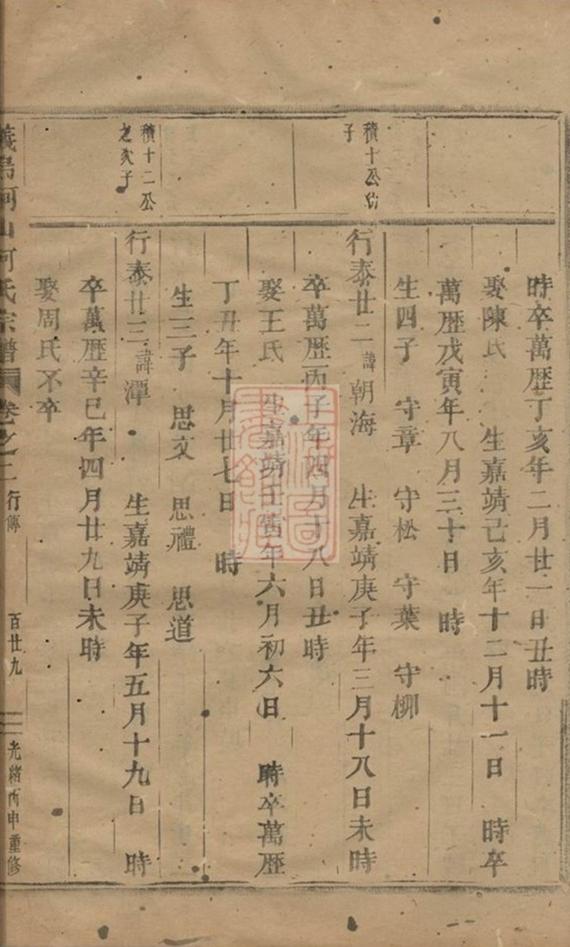 時卒萬歷丁亥年二月廿一日丑時
娶陳氏 生嘉靖己亥年十二月十一日 時卒
萬歷戊寅年八月三十日 時
生四子 守章 守松 守葉 守柳
積十公幼
子
行泰廿二 諱朝海 生嘉靖庚子年三月十八日未時
卒萬歷丙子年四月十八日丑時
娶王氏 生嘉靖壬寅年六月初六日 時卒萬歷
丁丑年十月廿七日 時
生三子 思文 思禮 思道
積十二公
之次子
行泰廿三 諱潭 生嘉靖庚子年五月十九日 時
卒萬歷辛巳年四月廿九日未時
娶周氏不卒
義烏河山何氏宗譜 卷之二 行傳 百廿九 光緒丙申重修